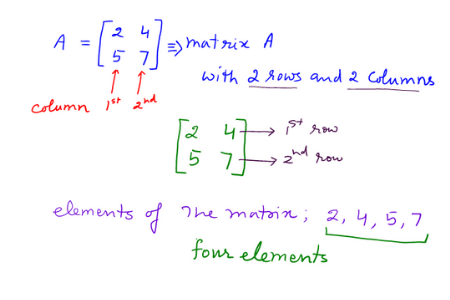 A = [2 4
5 7] ⇒ matrix A
with 2 rows and 2 columns
column 1st 2nd
[2 4 → 1st row
5 7] → 2nd row
elements of The matrix; 2, 4, 5, 7
four elements